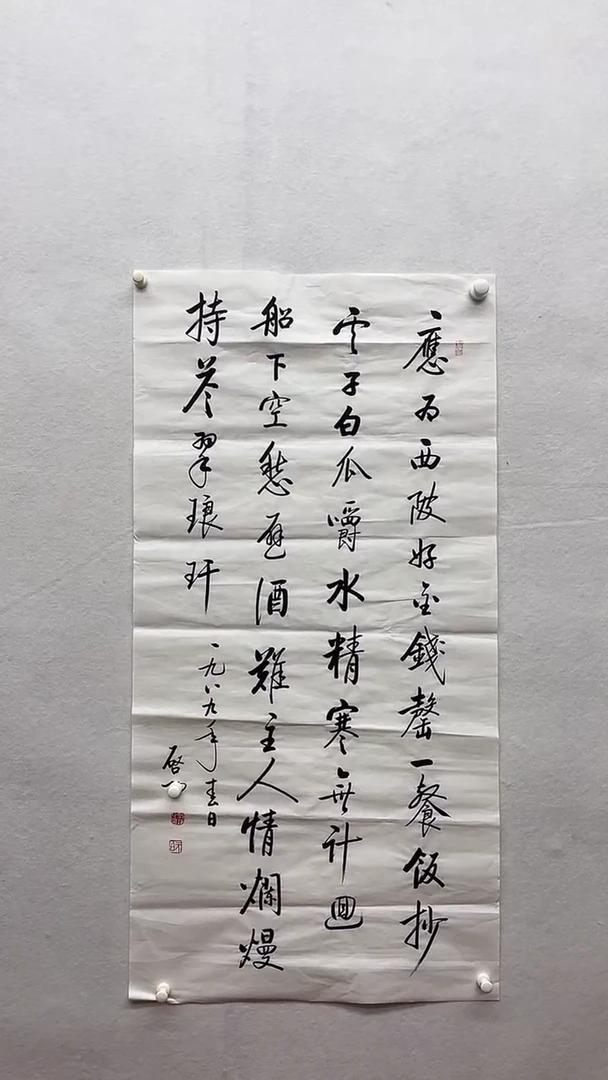 應為西陂好金錢罄一餐飯抄
云子白瓜嚼水精寒無計迴
船下空愁避酒難主人情爛熳
持荅翠琅玕
一九八九年春日
啓功